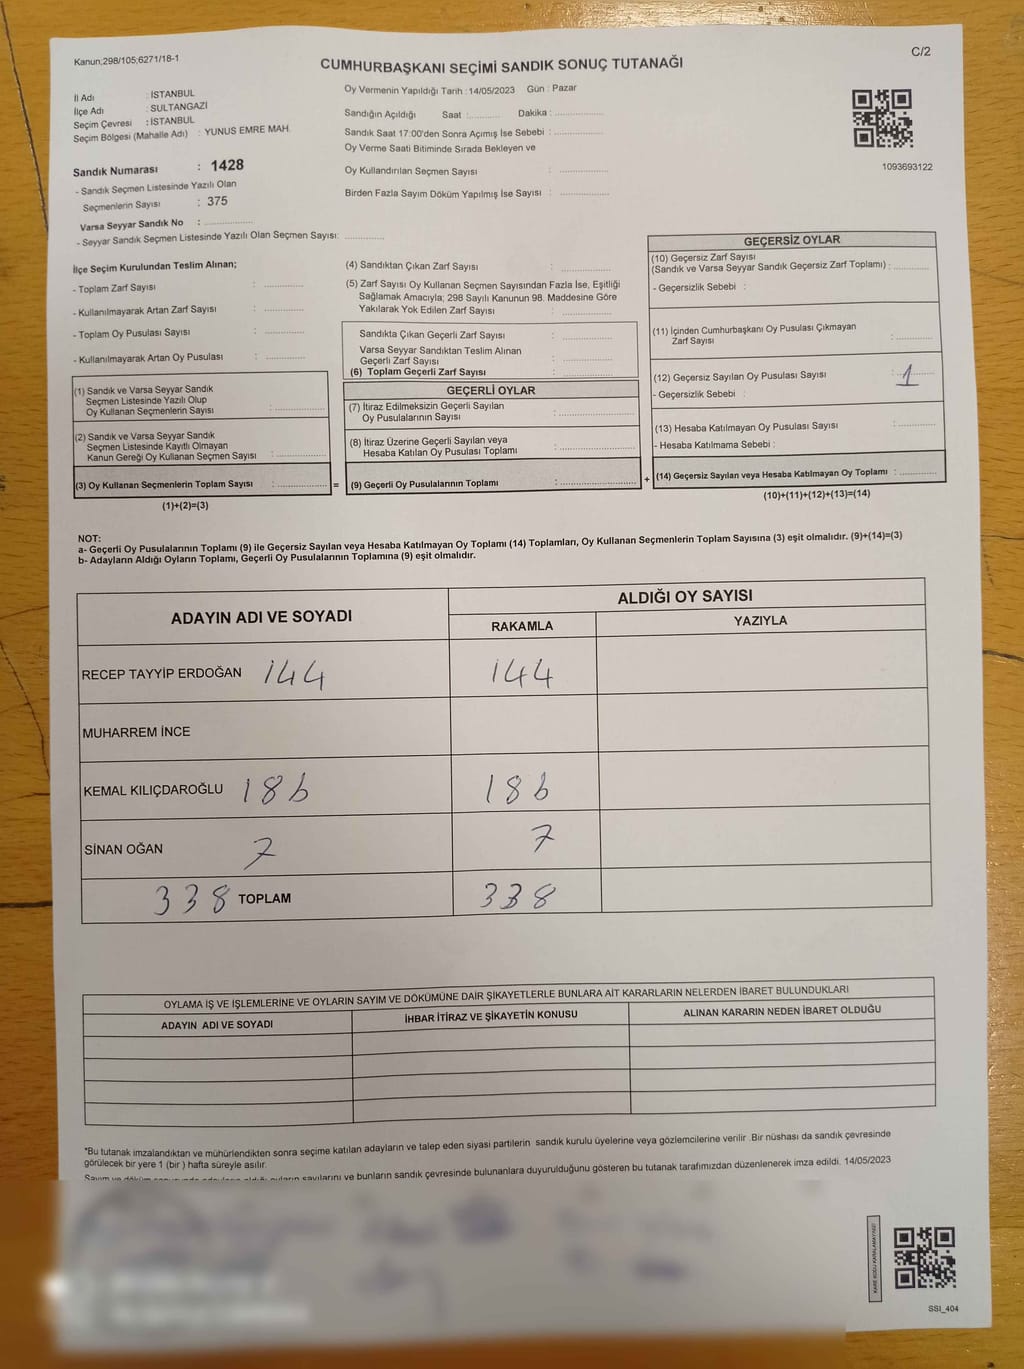 Kanun;298/105;6271/18-1
C/2
CUMHURBAŞKANI SEÇİMİ SANDIK SONUÇ TUTANAĞI
İl Adı : İSTANBUL
İlçe Adı : SULTANGAZİ
Seçim Çevresi : İSTANBUL
Seçim Bölgesi (Mahalle Adı) : YUNUS EMRE MAH.
Sandık Numarası : 1428
- Sandık Seçmen Listesinde Yazılı Olan
Seçmenlerin Sayısı : 375
Varsa Seyyar Sandık No : ..............
- Seyyar Sandık Seçmen Listesinde Yazılı Olan Seçmen Sayısı: ............
Oy Vermenin Yapıldığı Tarih : 14/05/2023 Gün : Pazar
Sandığın Açıldığı Saat :.......... Dakika :..............
Sandık Saat 17:00'den Sonra Açımış İse Sebebi : ..............
Oy Verme Saati Bitiminde Sırada Bekleyen ve
Oy Kullandırılan Seçmen Sayısı : ..............
Birden Fazla Sayım Döküm Yapılmış İse Sayısı : ..............
1093693122
İlçe Seçim Kurulundan Teslim Alınan;
- Toplam Zarf Sayısı : ............
- Kullanılmayarak Artan Zarf Sayısı : ............
- Toplam Oy Pusulası Sayısı : ............
- Kullanılmayarak Artan Oy Pusulası : ............
(1) Sandık ve Varsa Seyyar Sandık
Seçmen Listesinde Yazılı Olup
Oy Kullanan Seçmenlerin Sayısı : ..............
(2) Sandık ve Varsa Seyyar Sandık
Seçmen Listesinde Kayıtlı Olmayan
Kanun Gereği Oy Kullanan Seçmen Sayısı : ..............
(3) Oy Kullanan Seçmenlerin Toplam Sayısı : ..............
(1)+(2)=(3)
=
(4) Sandıktan Çıkan Zarf Sayısı : ..............
(5) Zarf Sayısı Oy Kullanan Seçmen Sayısından Fazla İse, Eşitliği
Sağlamak Amacıyla; 298 Sayılı Kanunun 98. Maddesine Göre
Yakılarak Yok Edilen Zarf Sayısı : ..............
Sandıkta Çıkan Geçerli Zarf Sayısı : ..............
Varsa Seyyar Sandıktan Teslim Alınan
Geçerli Zarf Sayısı : ..............
(6) Toplam Geçerli Zarf Sayısı : ..............
GEÇERLİ OYLAR
(7) İtiraz Edilmeksizin Geçerli Sayılan
Oy Pusulalarının Sayısı : ..............
(8) İtiraz Üzerine Geçerli Sayılan veya
Hesaba Katılan Oy Pusulası Toplamı : ..............
(9) Geçerli Oy Pusulalarının Toplamı : ..............
+
GEÇERSİZ OYLAR
(10) Geçersiz Zarf Sayısı
(Sandık ve Varsa Seyyar Sandık Geçersiz Zarf Toplamı) : ..........
- Geçersizlik Sebebi :
(11) İçinden Cumhurbaşkanı Oy Pusulası Çıkmayan
Zarf Sayısı : ..........
(12) Geçersiz Sayılan Oy Pusulası Sayısı : 1
- Geçersizlik Sebebi :
(13) Hesaba Katılmayan Oy Pusulası Sayısı : ..........
- Hesaba Katılmama Sebebi :
(14) Geçersiz Sayılan veya Hesaba Katılmayan Oy Toplamı : ..........
(10)+(11)+(12)+(13)=(14)
NOT:
a- Geçerli Oy Pusulalarının Toplamı (9) ile Geçersiz Sayılan veya Hesaba Katılmayan Oy Toplamı (14) Toplamları, Oy Kullanan Seçmenlerin Toplam Sayısına (3) eşit olmalıdır. (9)+(14)=(3)
b- Adayların Aldığı Oyların Toplamı, Geçerli Oy Pusulalarının Toplamına (9) eşit olmalıdır.
ADAYIN ADI VE SOYADI
ALDIĞI OY SAYISI
RAKAMLA YAZIYLA
RECEP TAYYİP ERDOĞAN 144 144
MUHARREM İNCE
KEMAL KILIÇDAROĞLU 186 186
SİNAN OĞAN 7 7
338 TOPLAM 338
OYLAMA İŞ VE İŞLEMLERİNE VE OYLARIN SAYIM VE DÖKÜMÜNE DAİR ŞİKAYETLERLE BUNLARA AİT KARARLARIN NELERDEN İBARET BULUNDUKLARI
ADAYIN ADI VE SOYADI İHBAR İTİRAZ VE ŞİKAYETİN KONUSU ALINAN KARARIN NEDEN İBARET OLDUĞU
*Bu tutanak imzalandıktan ve mühürlendikten sonra seçime katılan adayların ve talep eden siyasi partilerin sandık kurulu üyelerine veya gözlemcilerine verilir .Bir nüshası da sandık çevresinde
görülecek bir yere 1 (bir ) hafta süreyle asılır.
Sayım ve döküm sayıları ve bunların sandık çevresinde bulunanlara duyurulduğunu gösteren bu tutanak tarafımızdan düzenlenerek imza edildi. 14/05/2023
SSI_404